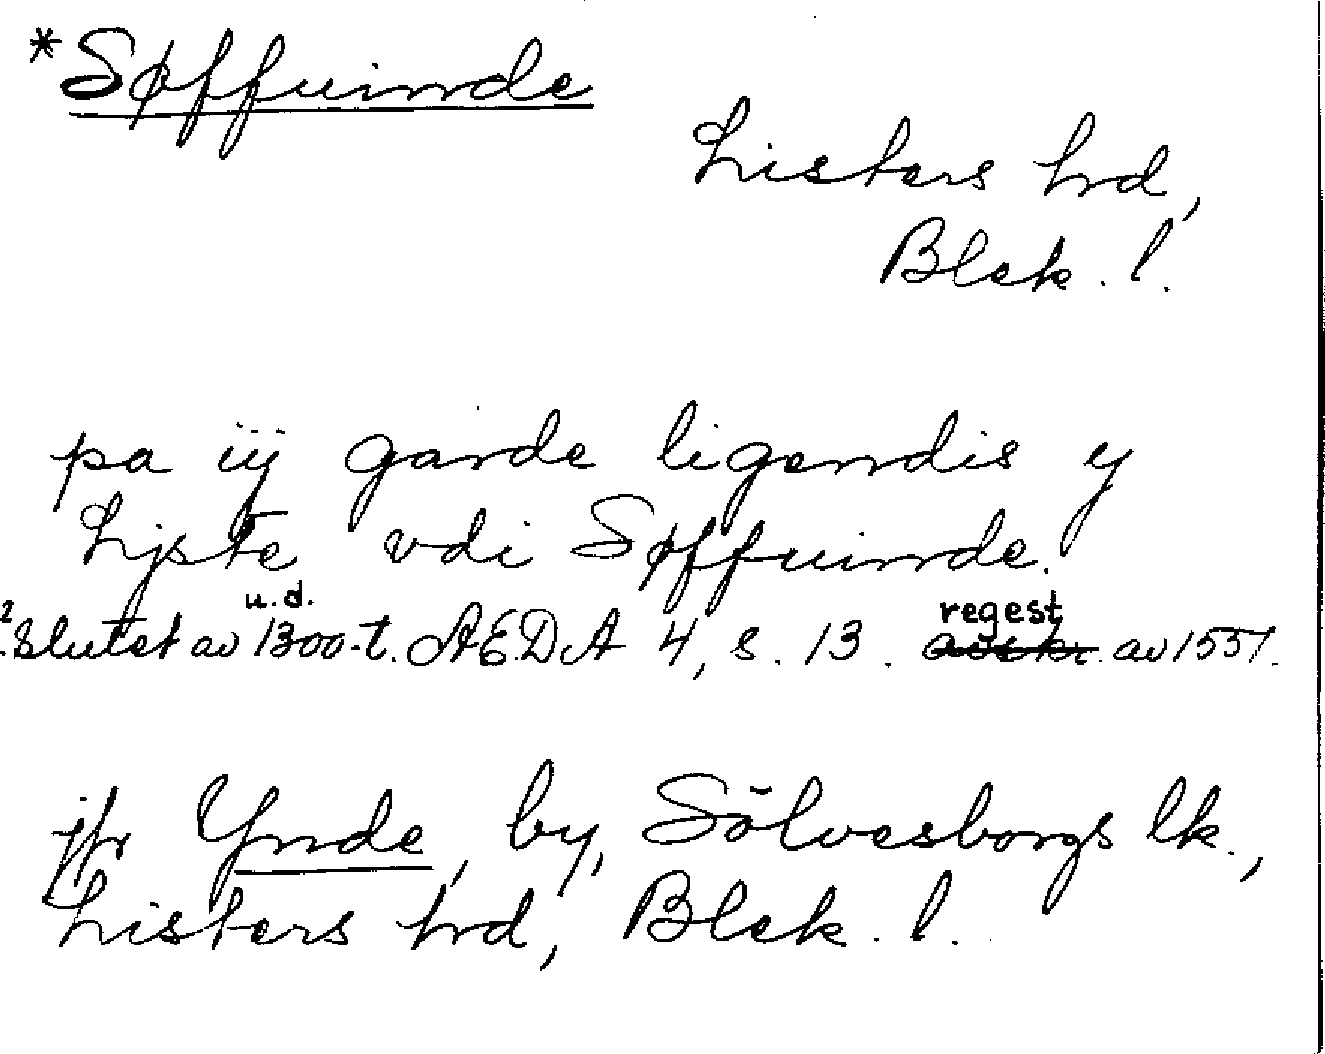 *Søffuinde
Listers hrd,
Blek. l.
pa iij garde ligendis y
Lijste vdi Søffuinde.
u.d. regest
Slutet av 1300-t. ÆDA 4, s. 13. avskr. av 1551.
jfr Ynde, by, Sölvesborgs lk.,
Listers hrd, Blek. l.